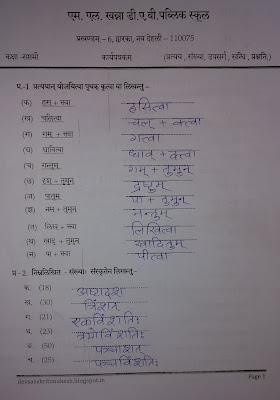 एम. एल. खन्ना डी.ए.वी.पब्लिक स्कूल
प्रखण्डम् – 6, द्वारका, नव देहली – 110075
कक्षा -सप्तमी कार्यपत्रकम् (प्रत्यय , संख्या, उपसर्गा , सन्धि , प्रश्ननि.)
प्र.-1 प्रत्ययान् योजयित्वा पृथक् कृत्वा वा लिखन्तु -
(क) हस् + क्त्वा हसित्वा
(ख) चलित्वा चल् + क्त्वा
(ग) गम् + क्त्वा गत्वा
(घ) धावित्वा धाव् + क्त्वा
(च) गन्तुम् गम् + तुमुन्
(छ) दृश् + तुमुन् द्रष्टुम्
(ज) पातुम् पा + तुमुन्
(झ) नम् + तुमुन् नन्तुम्
(त) लिख् + क्त्वा लिखित्वा
(थ) खाद् + तुमुन् खादितुम्
(न) पा + क्त्वा पीत्वा
प्र- 2. निम्नलिखित - संख्याः संस्कृतेन लिखन्तु -
क. (18) अष्टादश
ख. (30) त्रिंशत्
ग. (21) एकविंशतिः
घ. (23) त्रयोविंशतिः
ङ. (50) पञ्चाशत्
च. (25) पञ्चविंशतिः
devsanskritsuketh.blogspot.in Page 1